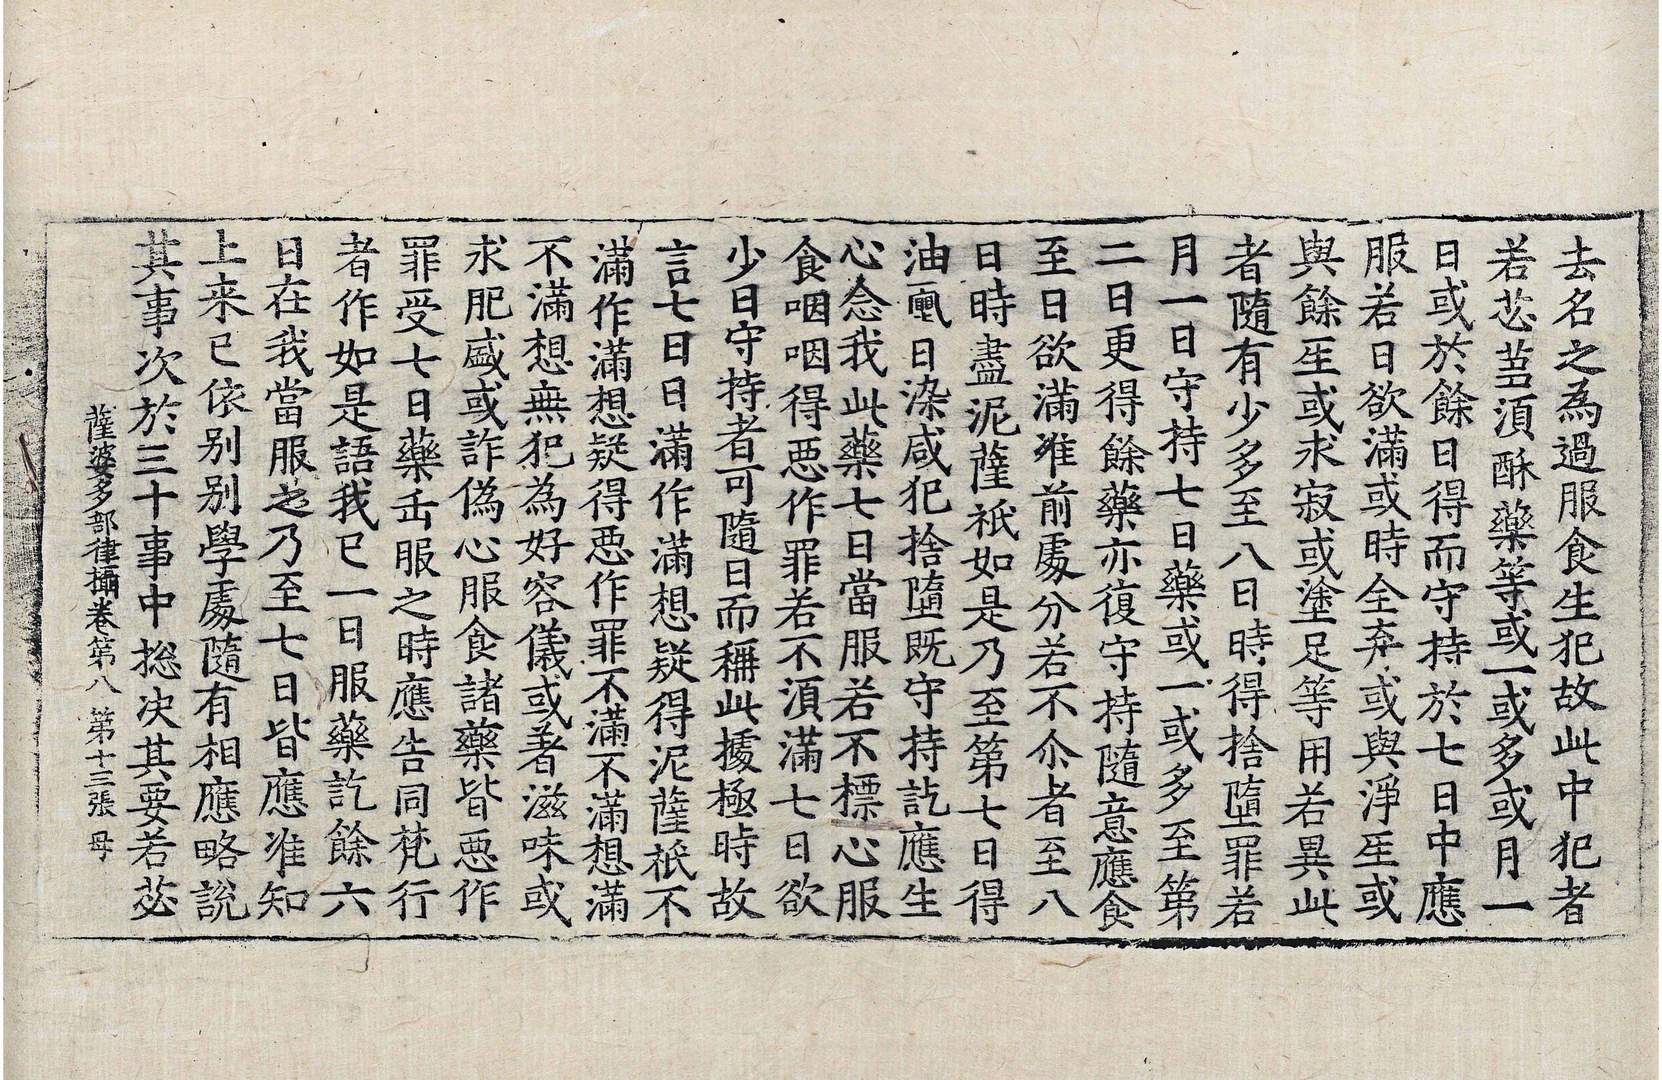 去名之為過服食生犯故此中犯者
若苾蒭湏酥藥等或一或多或月一
日或於餘日得而守持於七日中應
服若日欲滿或時全弃或與淨𤯔或
與餘𤯔或求寂或塗足等用若異此
者隨有少多至八日時得捨墮罪若
月一日守持七日藥或一或多至第
二日更得餘藥亦復守持隨意應食
至日欲滿准前處分若不尒者至八
日時盡泥薩祇如是乃至第七日得
油日染咸犯捨墮既守持訖應生
心念我此藥七日當服若不標心服
食咽咽得悪作罪若不湏滿七日欲
少日守持者可隨日而稱此據極時故
言七日日滿作滿想疑得泥薩祇不
滿作滿想疑得悪作罪不滿不滿想滿
不滿想無犯為好容儀或著滋味或
求肥盛或詐偽心服食諸藥皆悪作
罪受七日藥缶服之時應告同梵行
者作如是語我已一日服藥訖餘六
日在我當服之乃至七日皆應准知
上来已依別別學處隨有相應略說
其事次於三十事中捴決其要若苾
薩婆多部律攝卷第八 第十三張 母